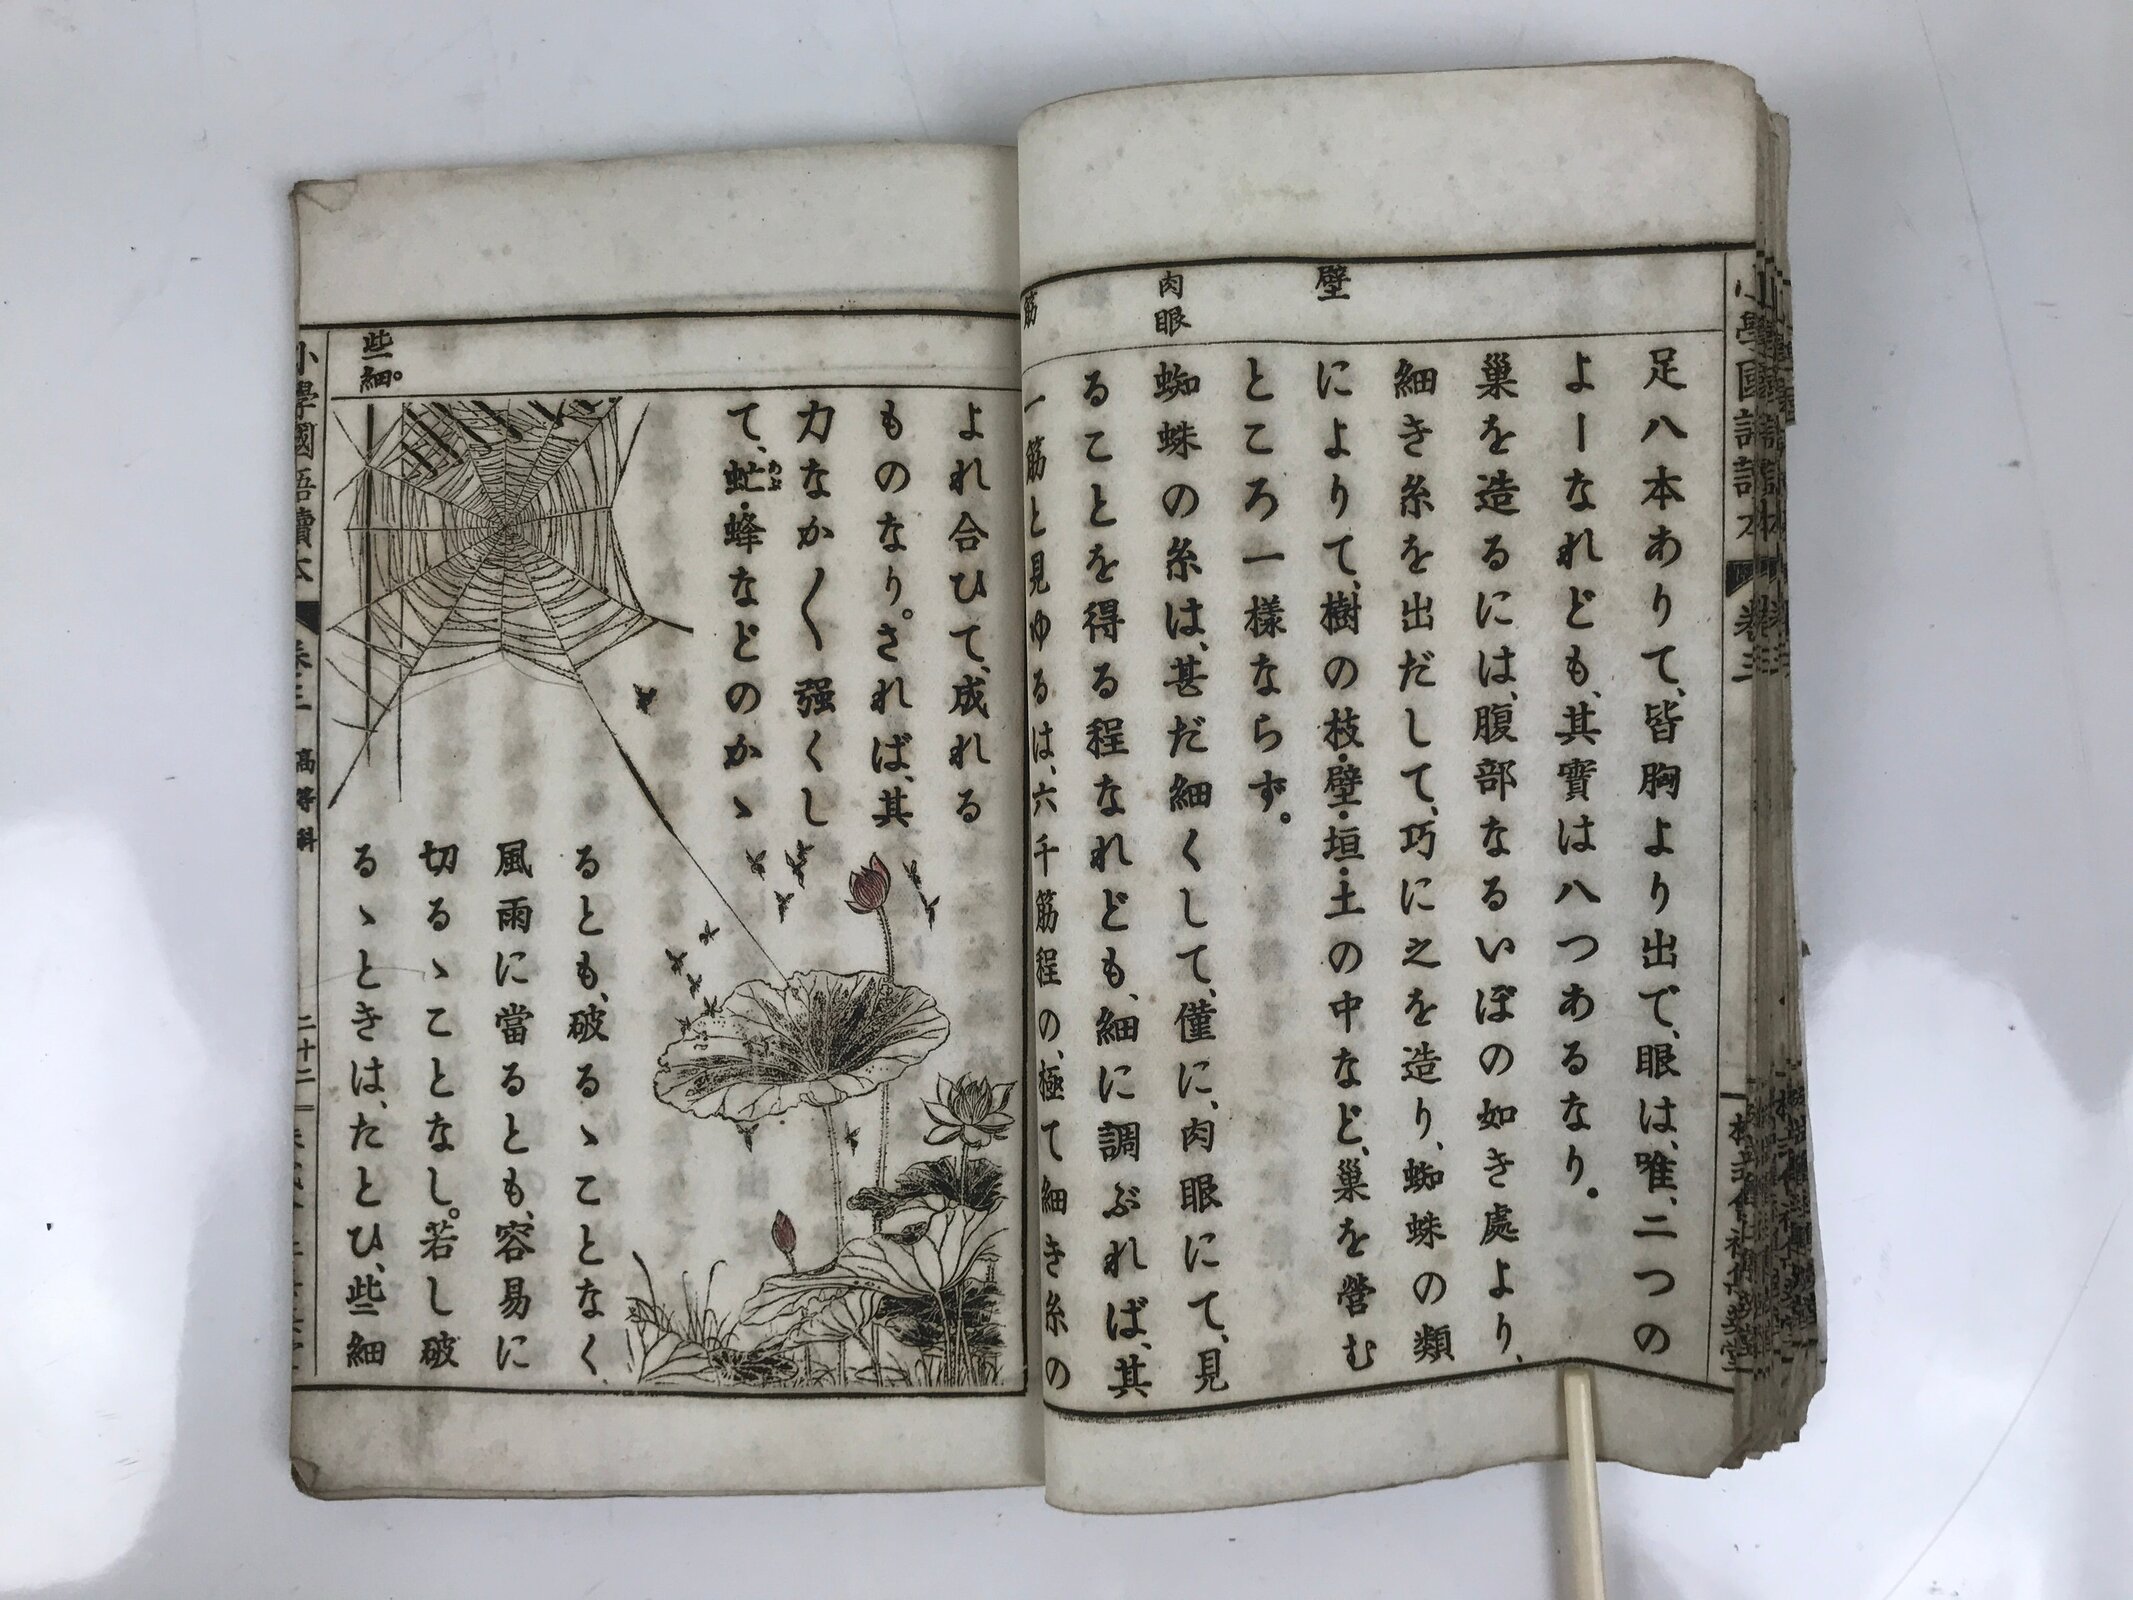 壁
肉眼
筋
足八本ありて、皆胸より出で、眼は、唯、二つの
よーなれども、其實は八つあるなり。
巢を造るには、腹部なるいぼの如き處より、
細き糸を出だして、巧に之を造り、蜘蛛の類
によりて、樹の枝・壁・垣・土の中など、巢を營む
ところ一樣ならず。
蜘蛛の糸は、甚だ細くして、僅に、肉眼にて、見
ることを得る程なれども、細に調ぶれば、其
一筋と見ゆるは、六千筋程の、極て細き糸の
些細。
よれ合ひて、成れる
ものなり。されば、其
力なか〱强くし
て、虻・蜂などのかゝ
るとも、破るゝことなく、
風雨に當るとも、容易に
切るゝことなし。若し破
るゝときは、たとひ、些細
小學國語讀本 卷三 高等科 二十二